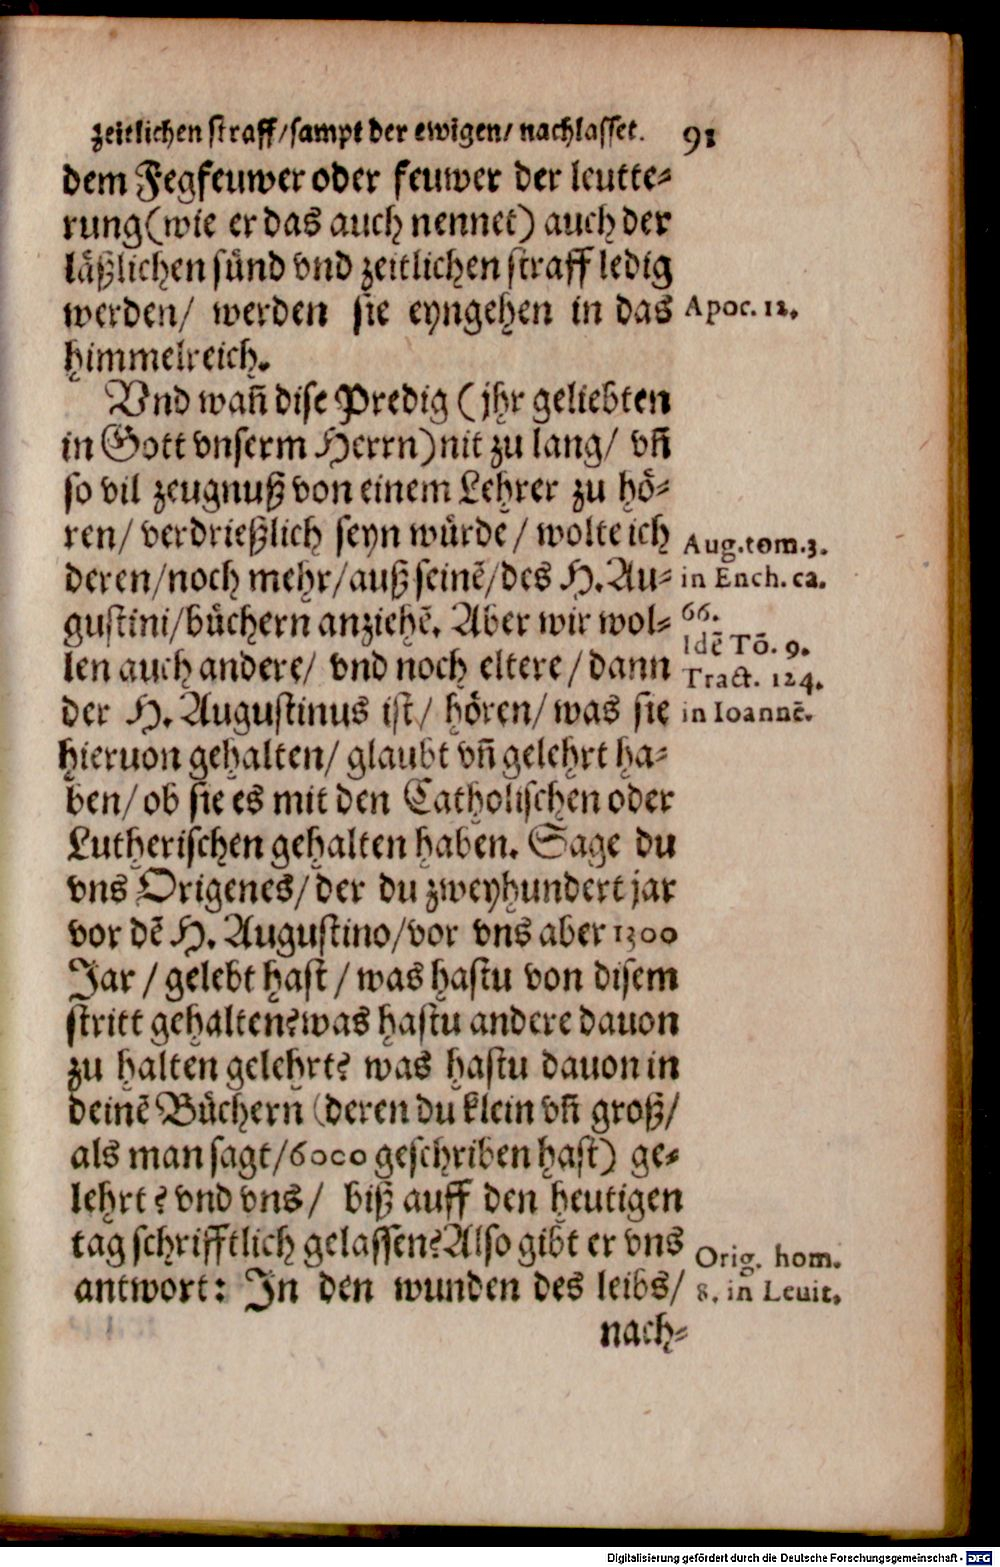 zeitlichen straff/sampt der ewigen/ nachlasset. 91
dem Fegfeuwer oder feuwer der leutte⸗
rung(wie er das auch nennet) auch der
läßlichen sünd vnd zeitlichen straff ledig
werden/ werden sie eyngehen in das
Apoc. 12.
himmelreich.
Vnd wañ dise Predig (jhr geliebten
in Gott vnserm Herrn)nit zu lang/ vñ
so vil zeugnuß von einem Lehrer zu hö⸗
ren/ verdrießlich seyn würde/ wolte ich
deren/noch mehr/auß seinẽ/des H. Au⸗
gustini/büchern anziehẽ. Aber wir wol⸗
len auch andere/ vnd noch eltere/ dann
der H. Augustinus ist/ hören/ was sie
Aug.tom.3.
in Ench. ca.
66.
Idẽ Tõ. 9.
Tract. 124.
in Ioannẽ.
hieruon gehalten/ glaubt vñ gelehrt ha⸗
ben/ ob sie es mit den Catholischen oder
Lutherischen gehalten haben. Sage du
vns Origenes/ der du zweyhundert jar
vor dẽ H. Augustino/vor vns aber 1300
Jar / gelebt hast / was hastu von disem
stritt gehalten?was hastu andere dauon
zu halten gelehrt? was hastu dauon in
deinẽ Büchern (deren du klein vñ groß/
als man sagt/6000 geschriben hast) ge⸗
lehrt? vnd vns/ biß auff den heutigen
tag schrifftlich gelassen?Also gibt er vns
antwort: In den wunden des leibs/
Orig. hom.
8. in Leuit.
nach⸗
Digitalisierung gefördert durch die Deutsche Forschungsgemeinschaft - DFG